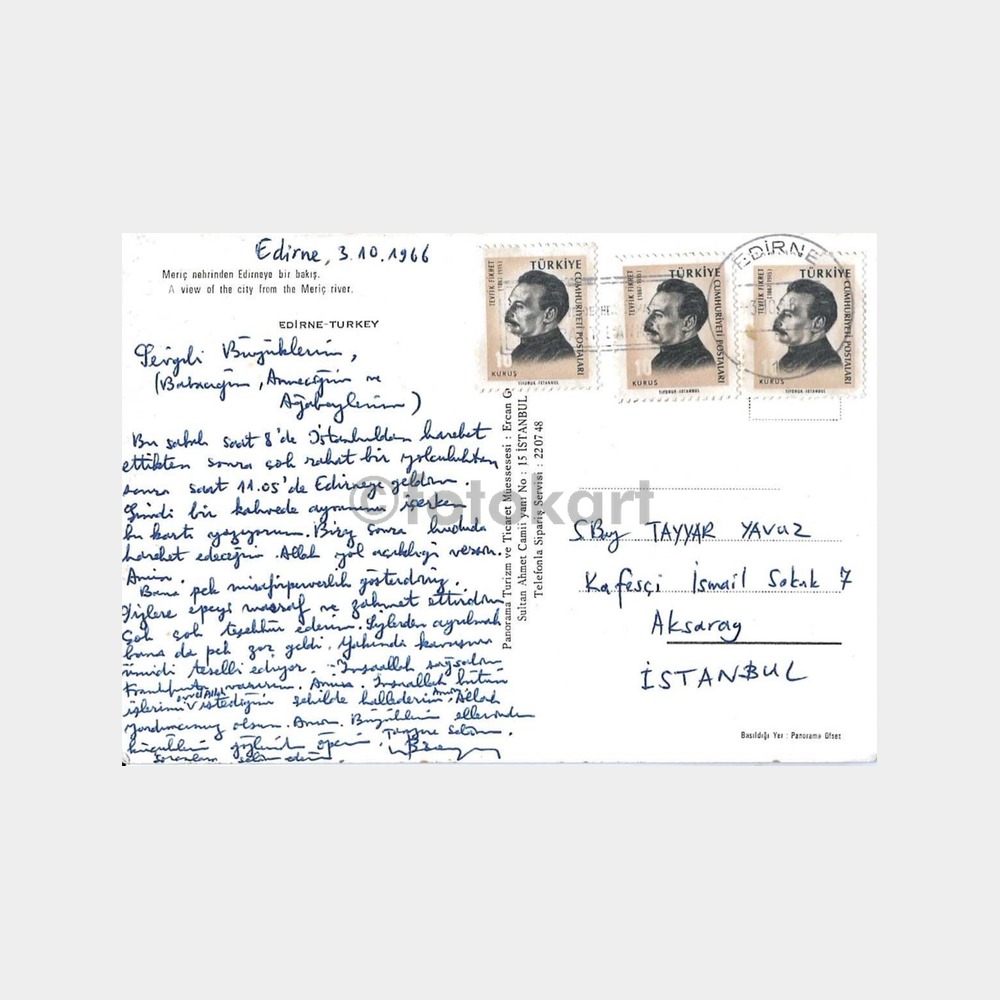 Edirne, 3.10.1966
Meriç nehrinden Edirneye bir bakış.
A view of the city from the Meriç river.
EDİRNE-TURKEY
Sevgili Büyüklerim,
(Babacığım, Anneciğim ve
Ağabeylerim)
Bu sabah saat 8'de İstanbuldan hareket
ettikten sonra çok rahat bir yolculuktan
sonra saat 11.05'de Edirneye geldim.
Şimdi bir kahvede ayranımı içerken
bu kartı yazıyorum. Biraz sonra hududa
hareket edeceğim. Allah yol açıklığı versin.
Amin.
Bana pek misafirperverlik gösterdiniz.
Sizlere epeyi masraf ve zahmet ettirdim
Çok çok teşekkür ederim. Sizlerden ayrılmak
bana da pek zor geldi. Yakında kavuşma
ümidi teselli ediyor. İnşaallah sağsalim
Frankfurta varırım. Amin. İnşaallah bütün
işlerimi istediğim şekilde hallederim. Allah
yardımcımız olsun. Amin. Büyüklerin ellerinden
küçüklerin gözlerinden öperim.
Soranlara selam ederim
TÜRKİYE
CUMHURİYETİ POSTALARI
TEVFİK FİKRET
(1867-1915)
10
KURUŞ
TİFDRUK-İSTANBUL
TÜRKİYE
CUMHURİYETİ POSTALARI
TEVFİK FİKRET
(1867-1915)
10
KURUŞ
TİFDRUK-İSTANBUL
TÜRKİYE
CUMHURİYETİ POSTALARI
TEVFİK FİKRET
(1867-1915)
KURUŞ
TİFDRUK-İSTANBUL
EDİRNE
Panorama Turizm ve Ticaret Muessesesi : Ercan
Sultan Ahmet Camii yanı No : 15 İSTANBUL
Telefonla Sipariş Servisi : 22 07 48
©fotokart
SBay TAYYAR YAVUZ
Kafesçi İsmail Sokak 7
Aksaray
İSTANBUL
Basıldığı Yer : Panorama Ofset